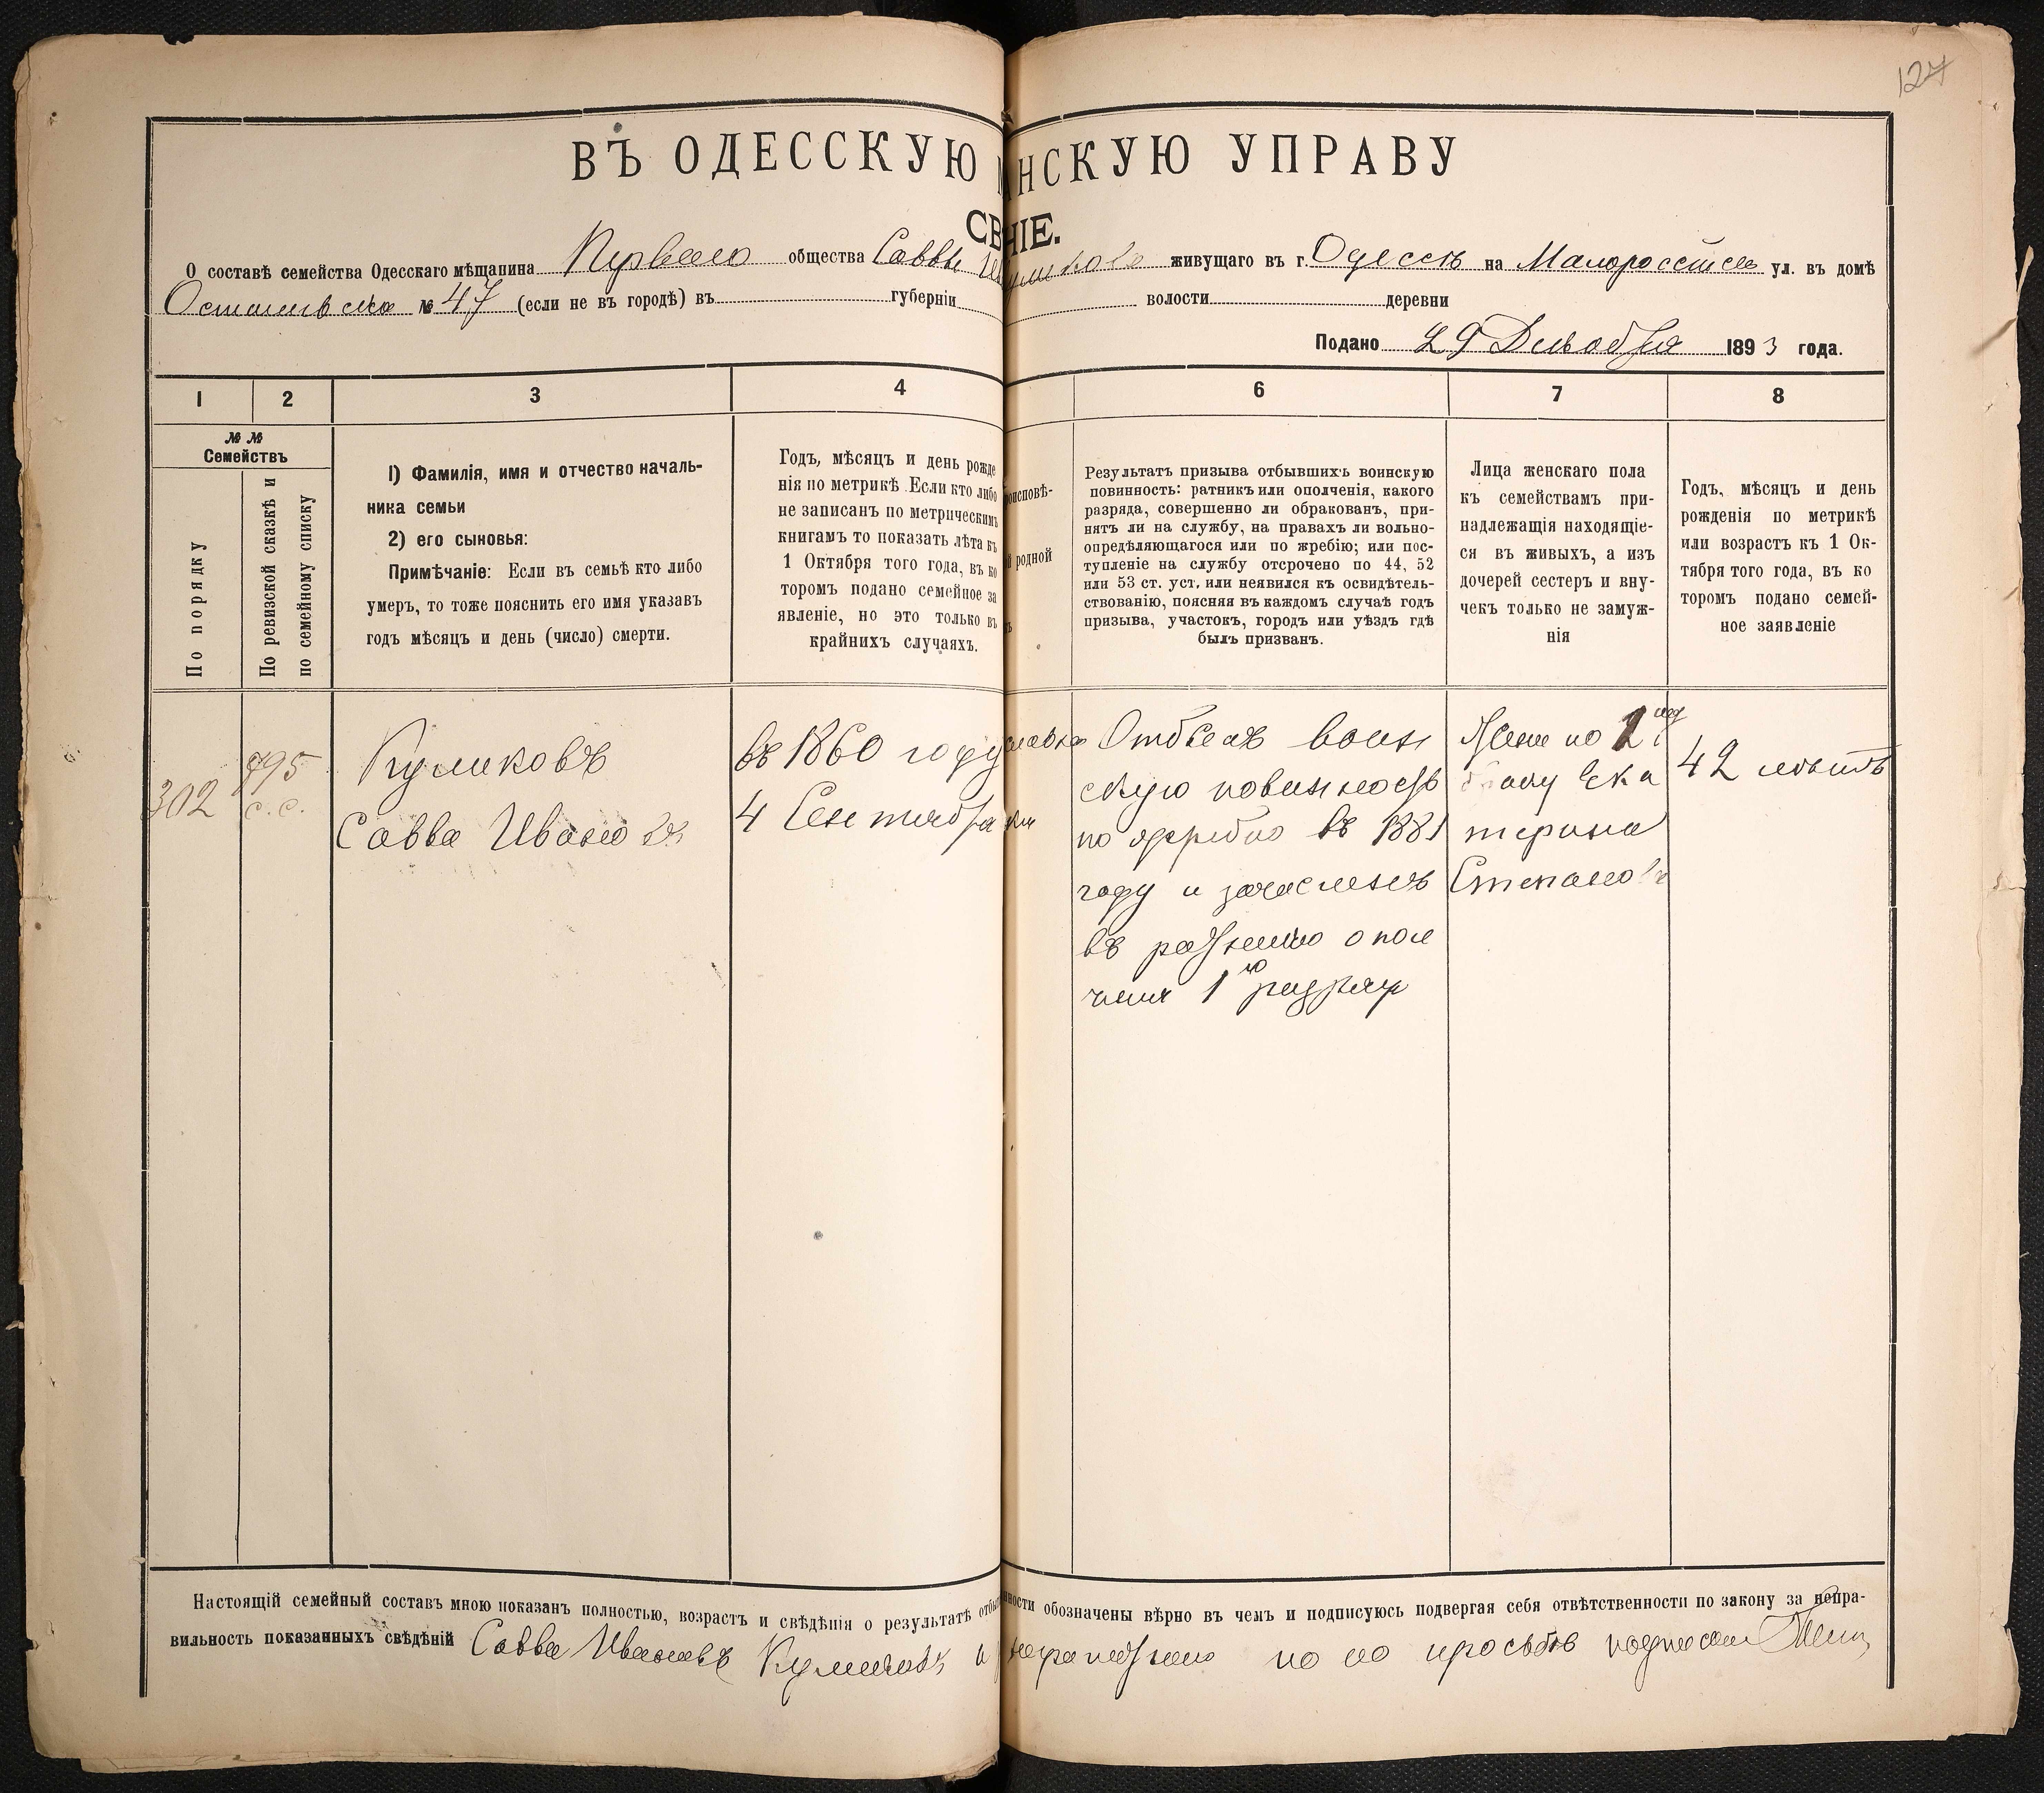 127
ВЪ ОДЕССКУЮ НСКУЮ УПРАВУ
СВ НІЕ.
О составѣ семейства Одесскаго мѣщанина Перваго общества Саввы Куликова живущаго въ г. Одессѣ на Малороссійск ул. въ домѣ
№ 47 (если не въ городѣ) въ губерніи волости деревни
Подано 29 Декабря 1893 года.
1 2 3 4 6 7 8
№ №
Семействъ
По порядку
По ревизской сказкѣ и
по семейному списку
1) Фамилія, имя и отчество началь-
ника семьи
2) его сыновья:
Примѣчаніе: Если въ семьѣ кто либо
умеръ, то тоже пояснить его имя указавъ
годъ мѣсяцъ и день (число) смерти.
Годъ, мѣсяцъ и день рожде
нія по метрикѣ. Если кто либо
не записанъ по метрическимъ
книгамъ то показать лѣта къ
1 Октября того года, въ ко
торомъ подано семейное за
явленіе, но это только въ
крайнихъ случаяхъ.
оисповѣ-
й родной
Результатъ призыва отбывшихъ воинскую
повинность: ратникъ или ополченія, какого
разряда, совершенно ли обракованъ, при-
нятъ ли на службу, на правахъ ли вольно-
опредѣляющагося или по жребію; или пос-
тупленіе на службу отсрочено по 44, 52
или 53 ст. уст. или неявился къ освидѣтель-
ствованію, поясняя въ каждомъ случаѣ годъ
призыва, участокъ, городъ или уѣздъ гдѣ
былъ призванъ.
Лица женскаго пола
къ семействамъ при-
надлежащія находящіе-
ся въ живыхъ, а изъ
дочерей сестеръ и вну-
чекъ только не замуж-
нія
Годъ, мѣсяцъ и день
рожденія по метрикѣ
или возрастъ къ 1 Ок-
тября того года, въ ко
торомъ подано семей-
ное заявленіе
302
795
с. с.
Куликовъ
Савва Ивановъ
въ 1860 году
4 Сентября
Отбылъ воин
скую повинность
по жребію въ 1881
году и зачисленъ
въ ратники опол
ченія 1го разряд
Жена по 2
браку Ека
терина
Степанов
42 лѣтъ
Настоящій семейный составъ мною показанъ полностью, возрастъ и свѣдѣнія о результатѣ отбы нности обозначены вѣрно въ чемъ и подписуюсь подвергая себя отвѣтственности по закону за непра-
вильность показанныхъ свѣдѣній Савва Ивановъ Куликовъ а неграмотного по его просьбѣ